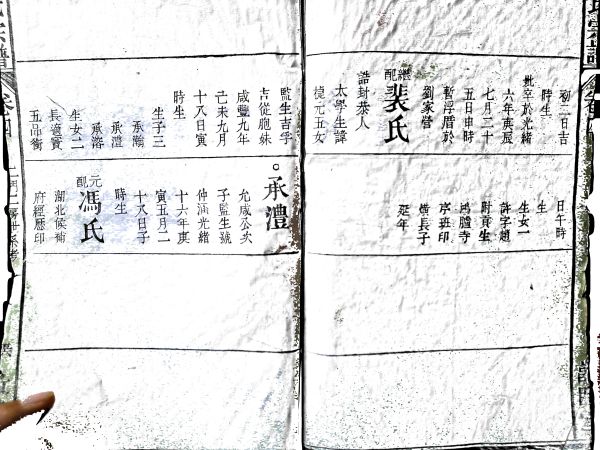 初三日吉
時生
卒於光緒
六年庚辰
七月三十
五日申時
暫浮厝於
劉家營
繼配裴氏
誥封恭人
太學生諱
捷元五女
監生吉孚
吉從胞妹
咸豐九年
己未九月
十八日寅
時生
生子三
承瀚
承澧
承溶
生女二
長適賓
五品銜
日午時
生
生女一
許字趙
附貢生
鴻臚寺
序班印
儀長子
延年
承澧
允成公次
子監生號
仲涵光緒
十六年庚
寅五月二
十八日子
時生
元配馮氏
湖北候補
府經歷印